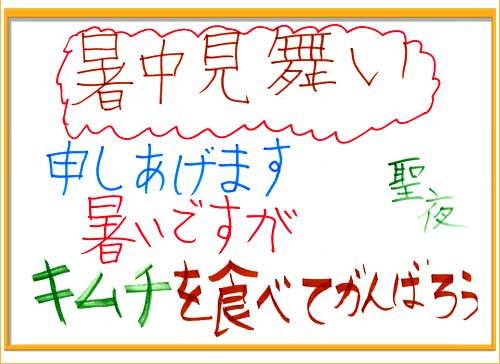 暑中見舞い
申しあげます
暑いですが
キムチを食べてがんばろう
聖夜